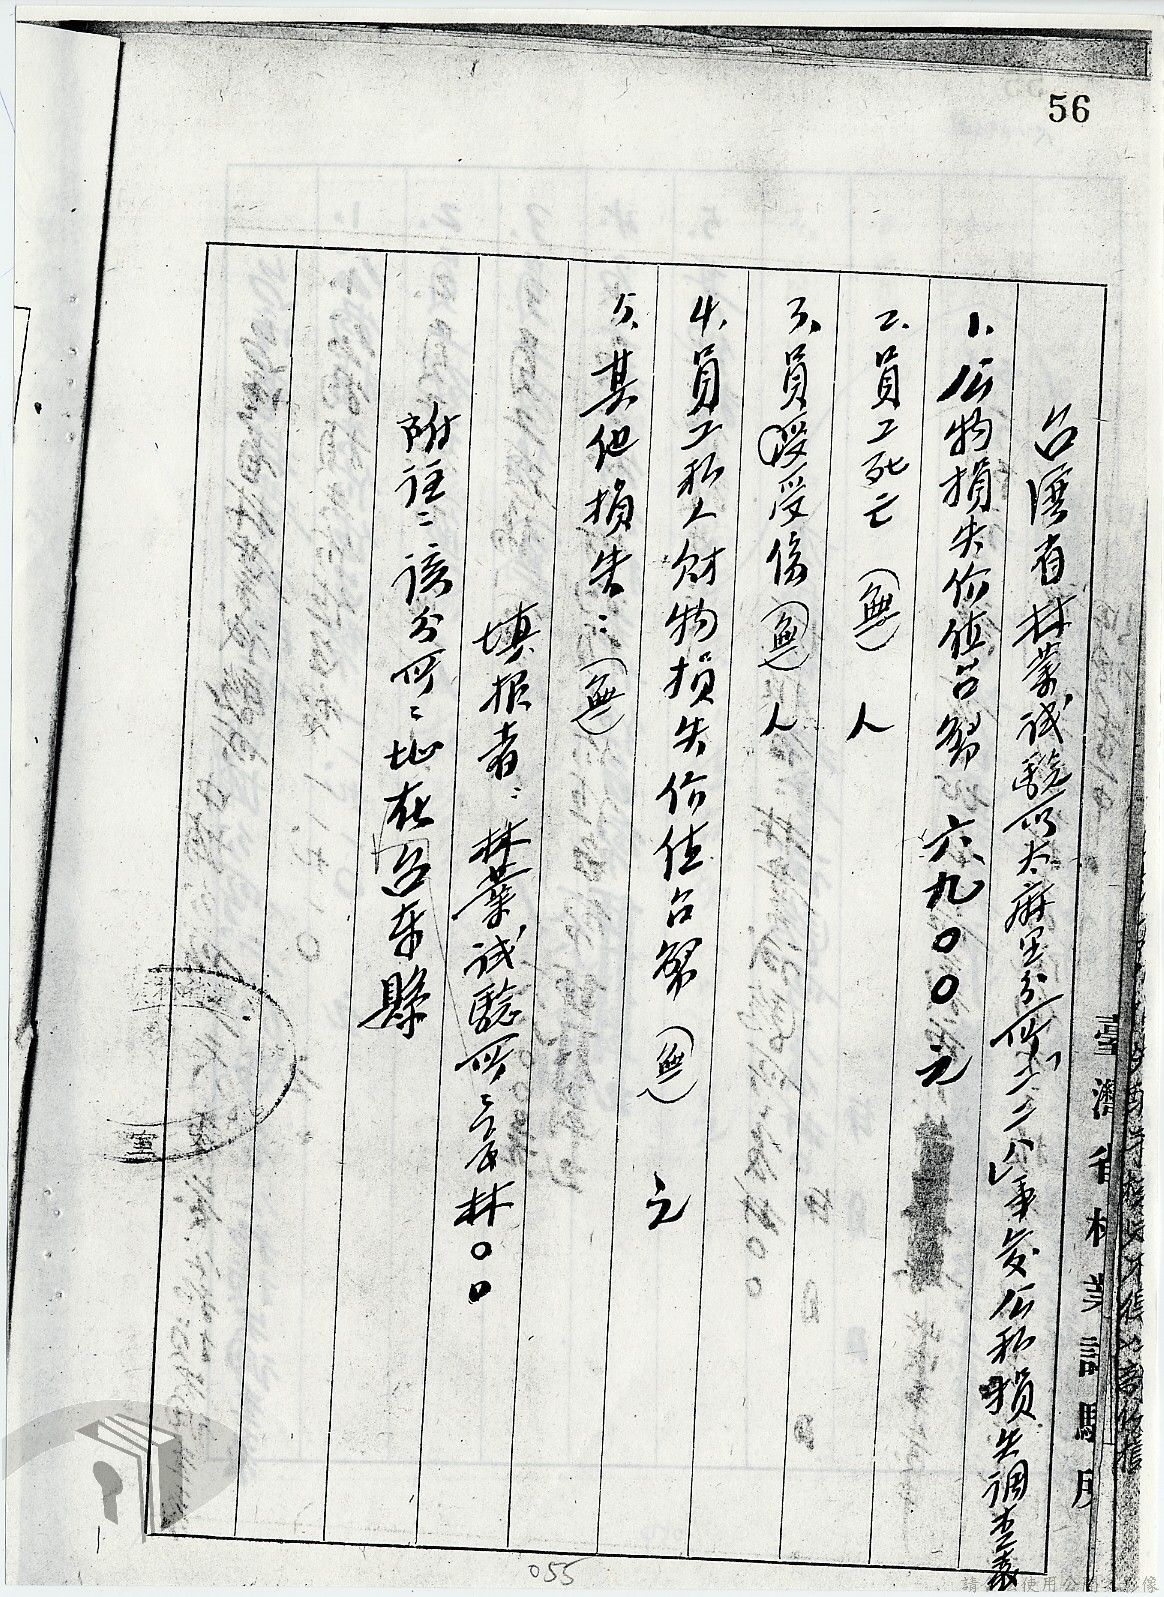 56
臺灣省林業試驗所
台湾省林業試驗所太麻里分所「二二八」事变公私損失調查表
1、公物損失价值台幣 六九〇〇元
2、員工死亡 (無) 人
3、員工受傷 (無) 人
4、員工私人財物損失价值台幣 (無) 元
5、其他損失：(無)
填报者：林業試驗所 林〇〇
附註：該分所、地在台东縣
055